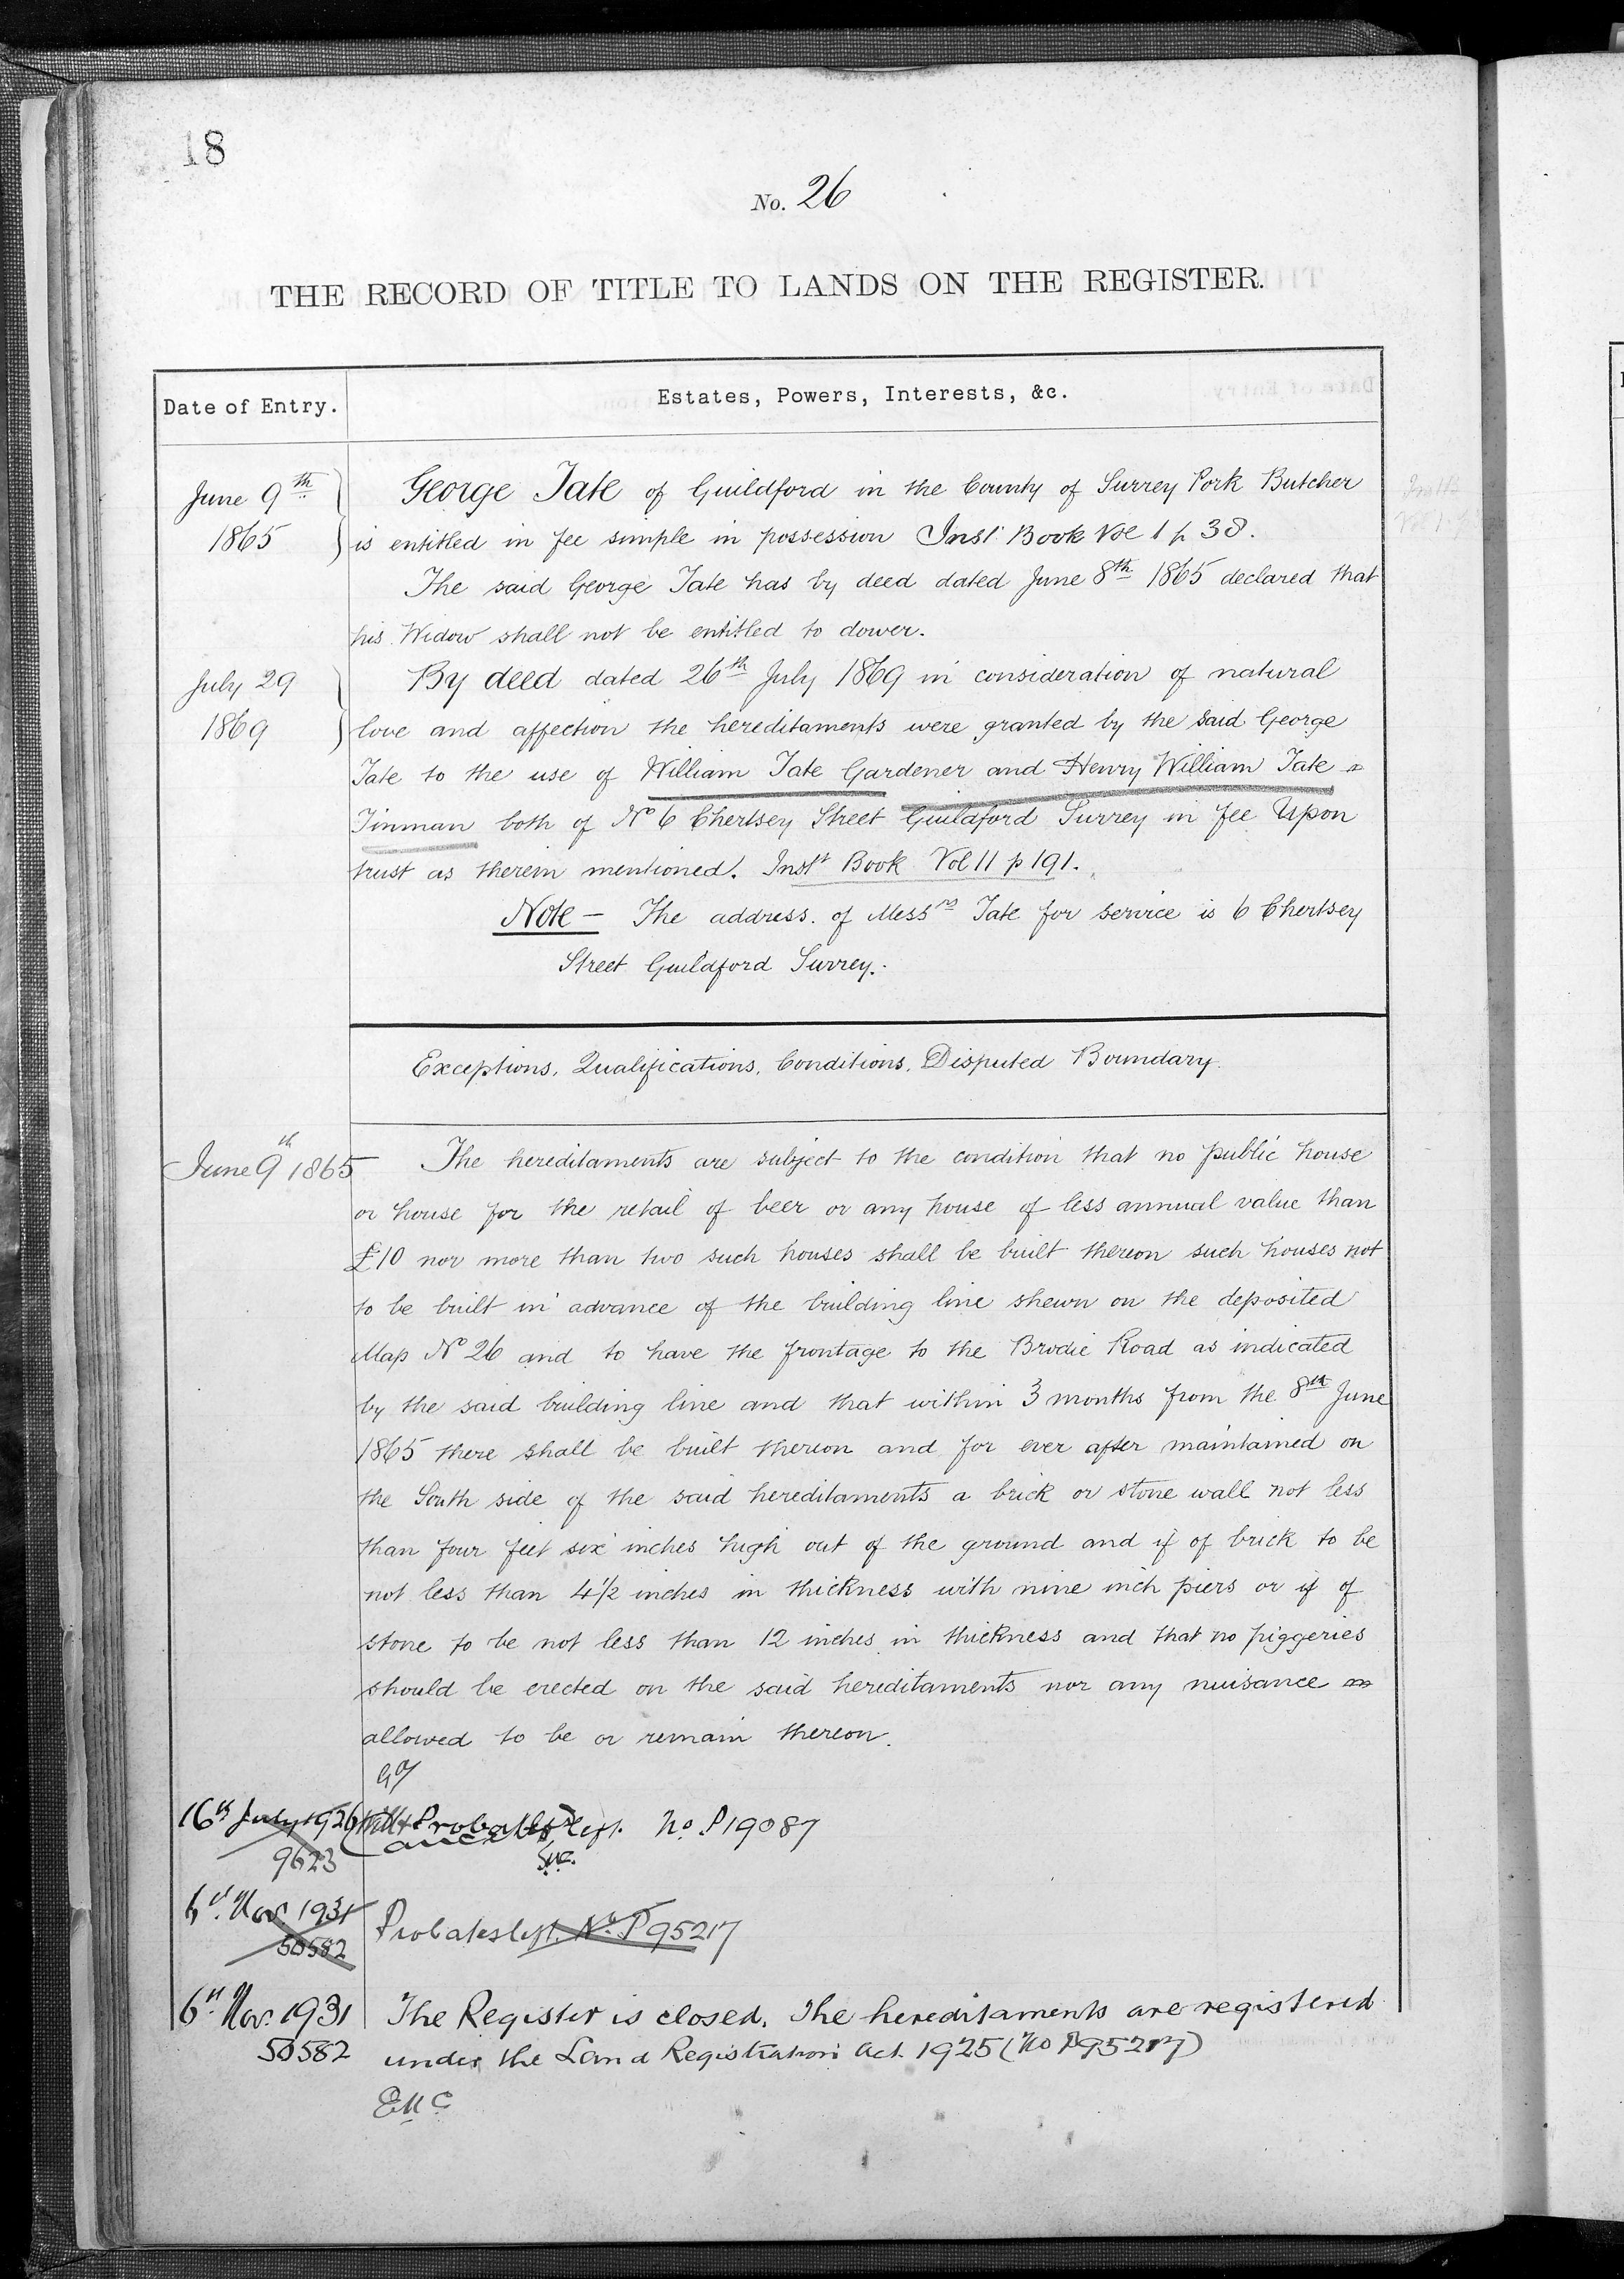 18
No. 26
THE RECORD OF TITLE TO LANDS ON THE REGISTER.
Date of Entry.
Estates, Powers, Interests, &c.
June 9th
1865
George Tate of Guildford in the County of Surrey Pork Butcher
is entitled in fee simple in possession Inst Book Vol 1 p 38.
The said George Tate has by deed dated June 8th 1865 declared that
his Widow shall not be entitled to dower.
July 29
1869
By deed dated 26th July 1869 in consideration of natural
love and affection the hereditaments were granted by the said George
Tate to the use of William Tate Gardener and Henry William Tate
Tinman both of No 6 Chertsey Street Guildford Surrey in fee Upon
trust as therein mentioned. Instt Book Vol 11 p 191.
Note - The address of Messrs Tate for service is 6 Chertsey
Street Guildford Surrey.
Exceptions, Qualifications, Conditions, Disputed Boundary.
June 9th 1865
The hereditaments are subject to the condition that no public house
or house for the retail of beer or any house of less annual value than
£10 nor more than two such houses shall be built thereon such houses not
to be built in advance of the building line shewn on the deposited
Map No 26 and to have the frontage to the Brodie Road as indicated
by the said building line and that within 3 months from the 8th June
1865 there shall be built thereon and for ever after maintained on
the South side of the said hereditaments a brick or stone wall not less
than four feet six inches high out of the ground and if of brick to be
not less than 4½ inches in thickness with nine inch piers or if of
stone to be not less than 12 inches in thickness and that no piggeries
should be erected on the said hereditaments nor any nuisance
allowed to be or remain thereon.
16th July 1926
9623
No. P19087
6th Nov. 1931
50582
No. P95217
6th Nov. 1931
50582
The Register is closed. The hereditaments are registered
under the Land Registration Act. 1925 (No P95217)